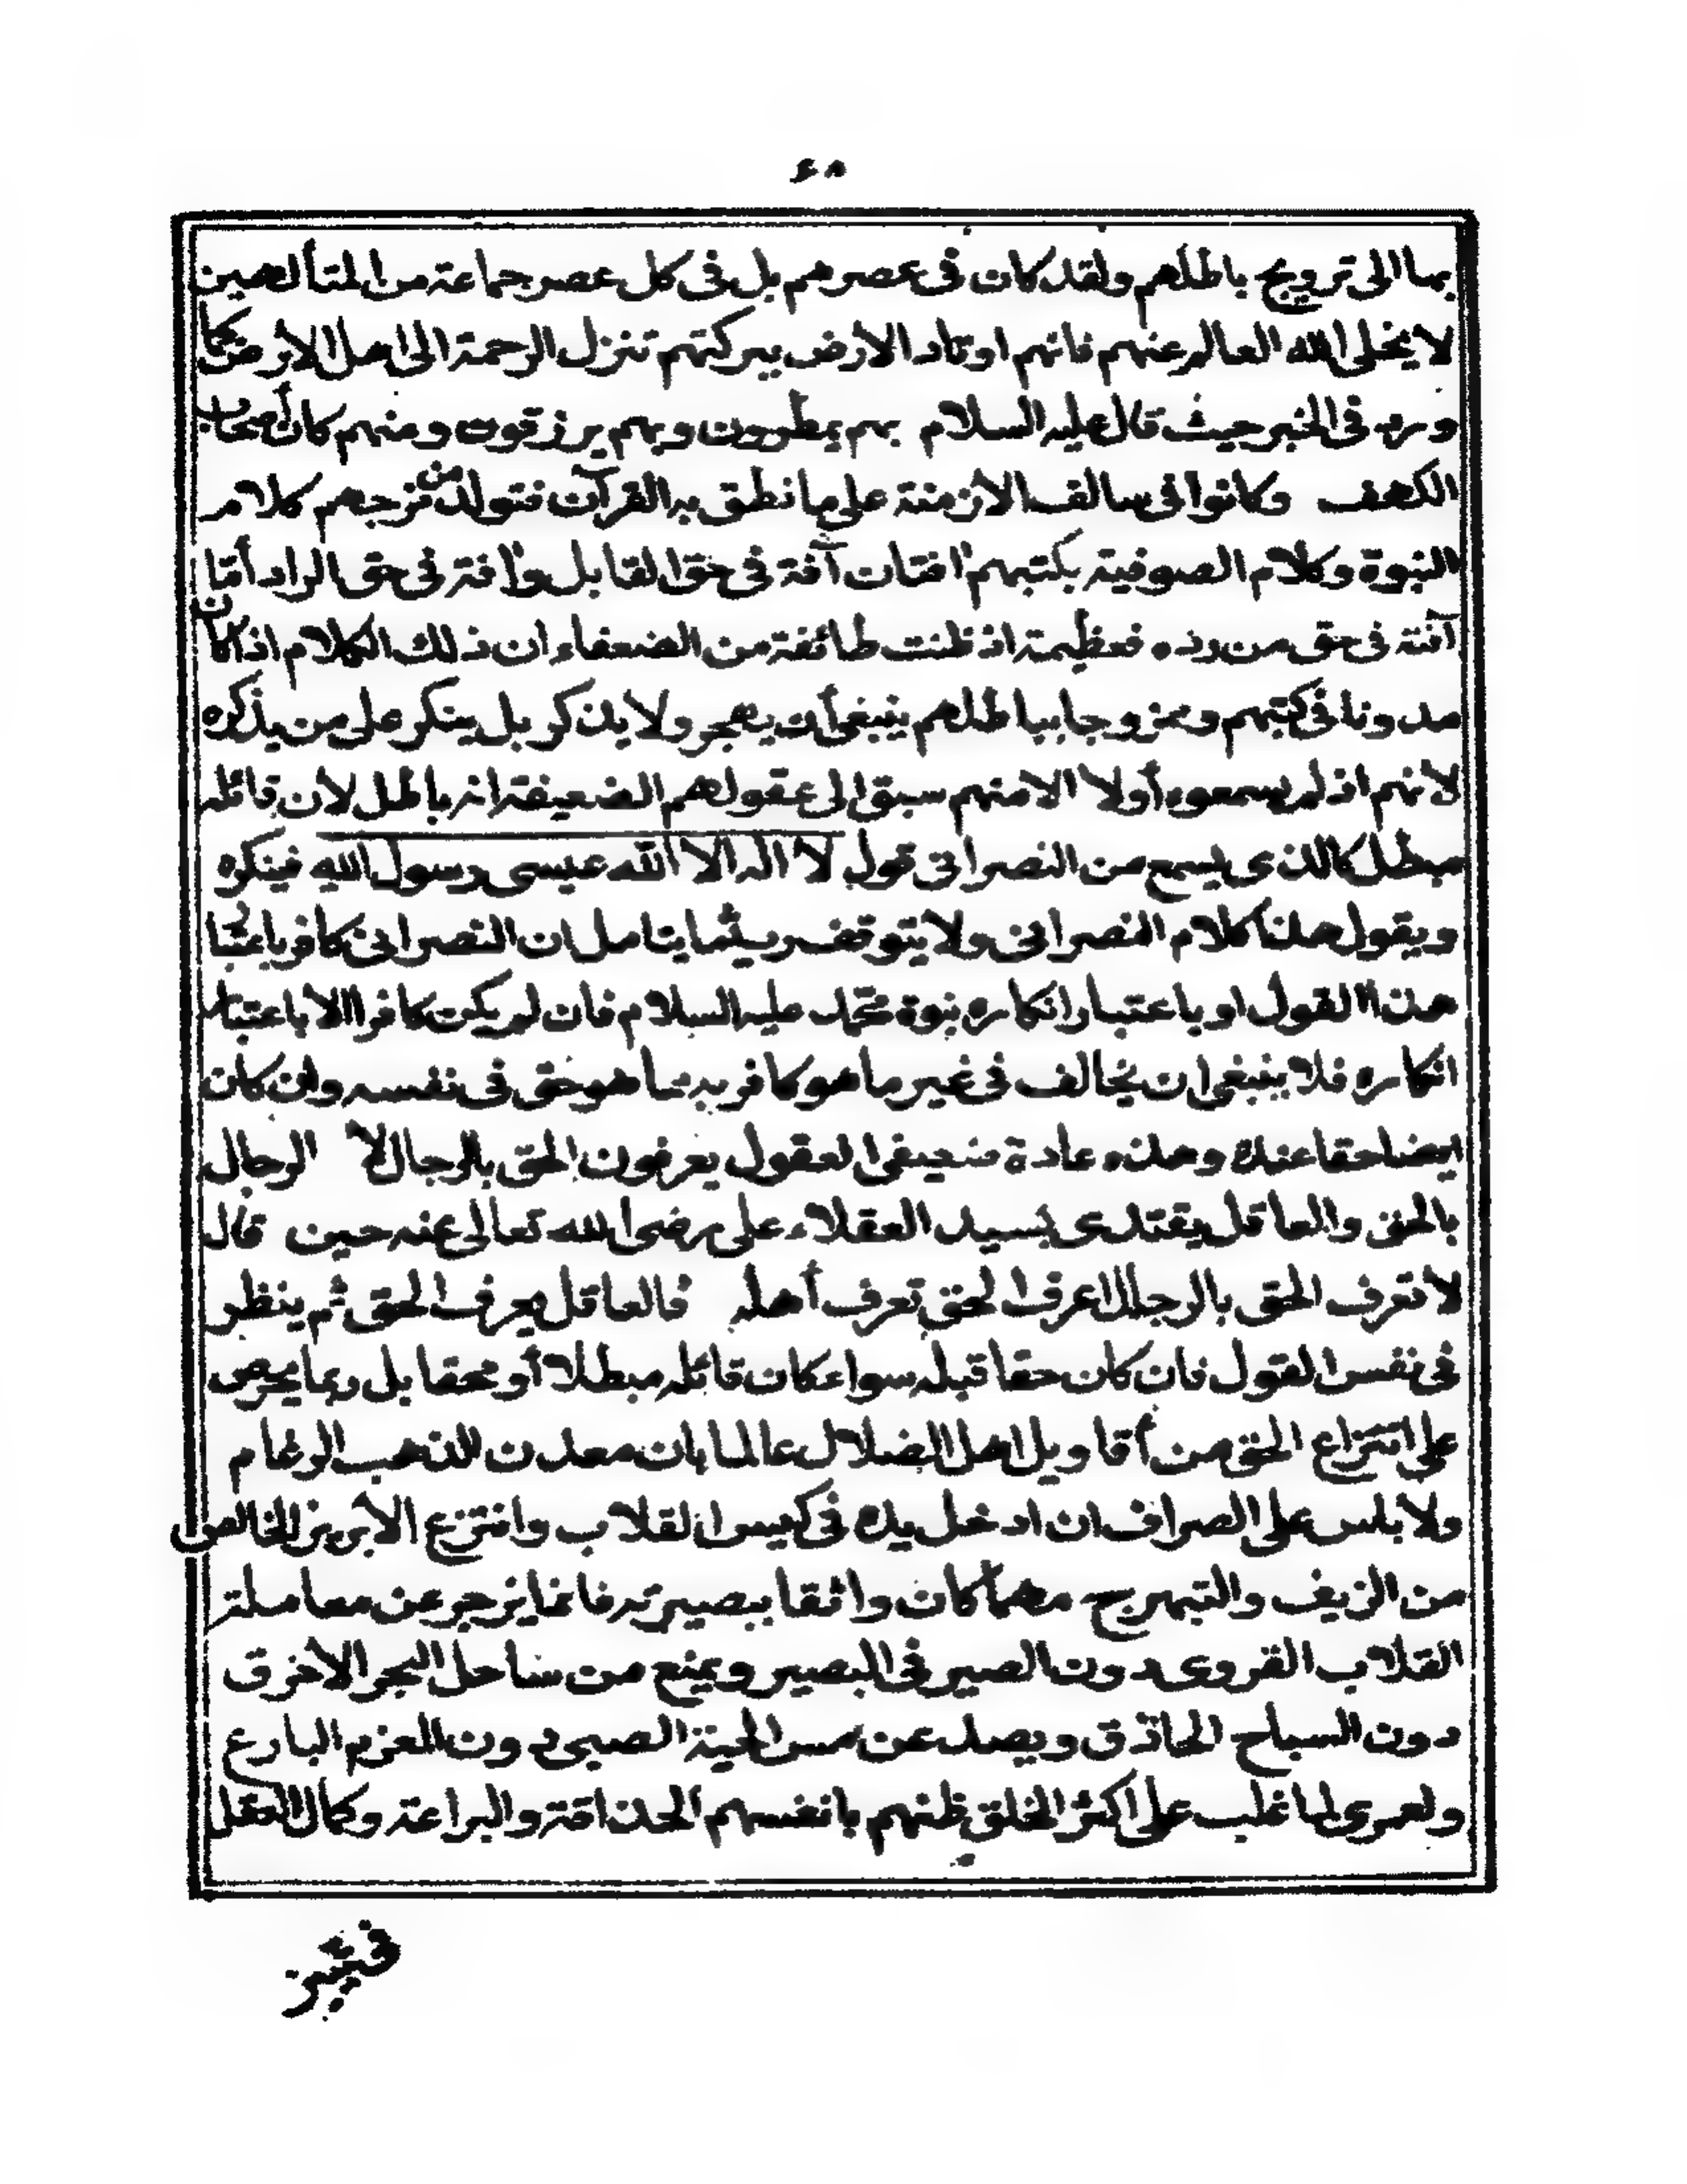 بما الى ترويج باطلهم ولقد كان فى عصرهم بل فى كل عصر جماعة من المتألهين
لا يخلى الله العالم عنهم فانهم اوتاد الارض ببركتهم تنزل الرحمة الى اهل الارض كما
ورد فى الخبر حيث قال عليه السلام بهم يمطرون وبهم يرزقون ومنهم كان أصحاب
الكهف وكانوا فى سالف الازمنة على ما نطق به القرآن فتولد من مزجهم كلام
النبوة وكلام الصوفية بكتبهم افتان آفة فى حق القابل وافة فى حق الراد أمّا
آفته فى حق من رده فعظيمة اذ ظنت طائفة من الضعفاء ان ذلك الكلام اذا كان
مدونا فى كتبهم وممزوجا بباطلهم ينبغى أن يهجر ولا يذكر بل ينكر على من يذكره
لانهم اذ لم يسمعوه أولا الا منهم سبق الى عقولهم الضعيفة انه باطل لان قائله
مبطل كالذى يسمع من النصرانى قول لا اله الا الله عيسى رسول الله فينكره
ويقول هذا كلام النصرانى ولا يتوقف ريثما يتامل ان النصرانى كافر باعتبا
هذا القول او باعتبار انكاره نبوة محمد عليه السلام فان لم يكن كافرا الا باعتبار
انكاره فلا ينبغى ان يخالف فى غير ما هو كافر به مما هو حق فى نفسه وان كان
ايضا حقا عنده وهذه عادة ضعيفى العقول يعرفون الحق بالرجال لا الرجال
بالحق والعاقل يقتدى بسيد العقلاء على رضى الله تعالى عنه حين قال
لا تعرف الحق بالرجال اعرف الحق تعرف أهله فالعاقل يعرف الحق ثم ينظر
فى نفس القول فان كان حقا قبله سواء كان قائله مبطلا أو محقا بل ربما يحرص
على انتزاع الحق من أقاويل اهل الضلال عالما بان معدن الذهب الرغام
ولا بلس على الصراف ان ادخل يده فى كيس القلاب وانتزع الابريز الخالص
من الزيف والتبهرج مهما كان واثقا ببصيرته فانما يزجر عن معاملة
القلاب القروى دون الصيرفى البصير ويمنع من ساحل البحر الاخرق
دون السباح الحاذق ويصد عن مس الحية الصبى دون المعزم البارع
ولعمرى لما غلب على اكثر الخلق ظنهم بانفسهم الحذاقة والبراعة وكمال العقل